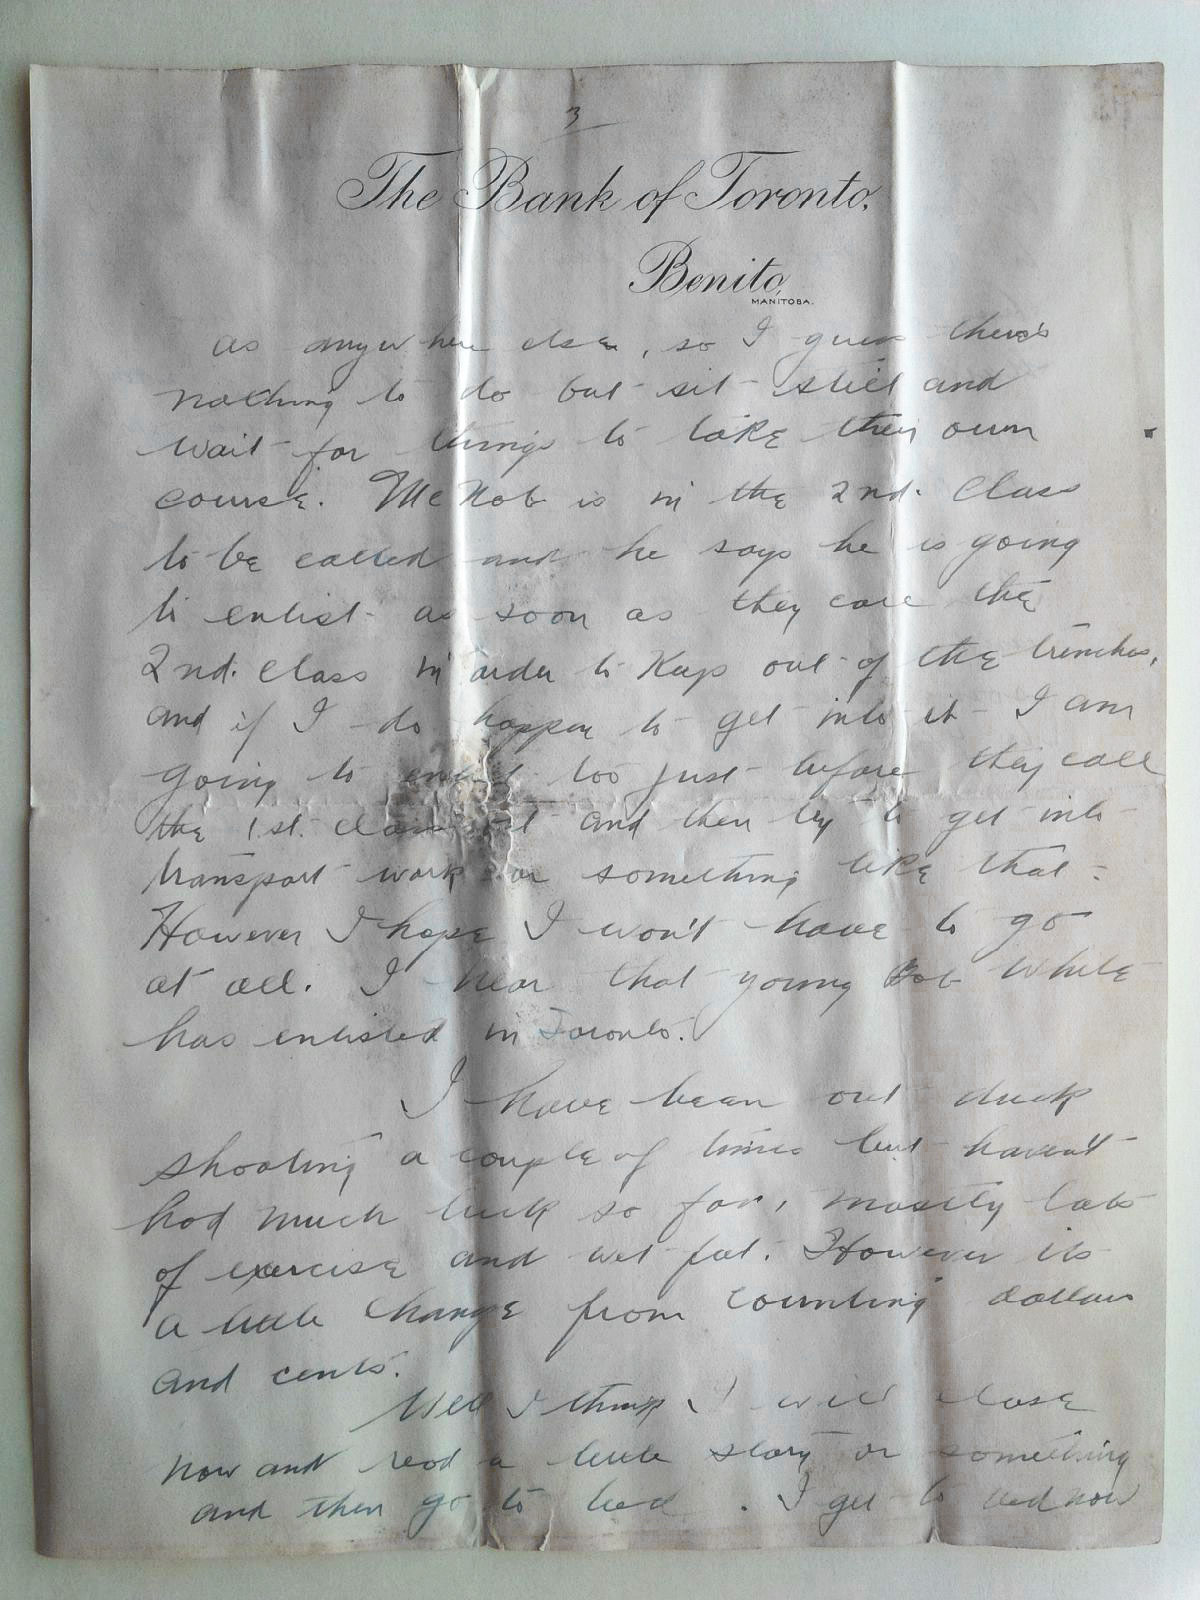 3
The Bank of Toronto,
Benito,
MANITOBA.
as anywhere else, so I guess there's
nothing to do but sit still and
wait for things to take their own
course. McNab is in the 2nd. Class
to be called and he says he is going
to enlist as soon as they call the
2nd. Class in order to Keep out of the trenches,
and if I do happen to get into it I am
going to enlist too just before they call
the 1st. class out and then try to get into
transport work or something like that.
However I hope I won't have to go
at all. I hear that young Bob White
has enlisted in Toronto.
I have been out duck
shooting a couple of times but haven't
had much luck so far, mostly lots
of exercise and wet feet. However its
a little change from counting dollars
and cents.
Well I think I will close
now and read a little story or something
and then go to bed. I get to bed now